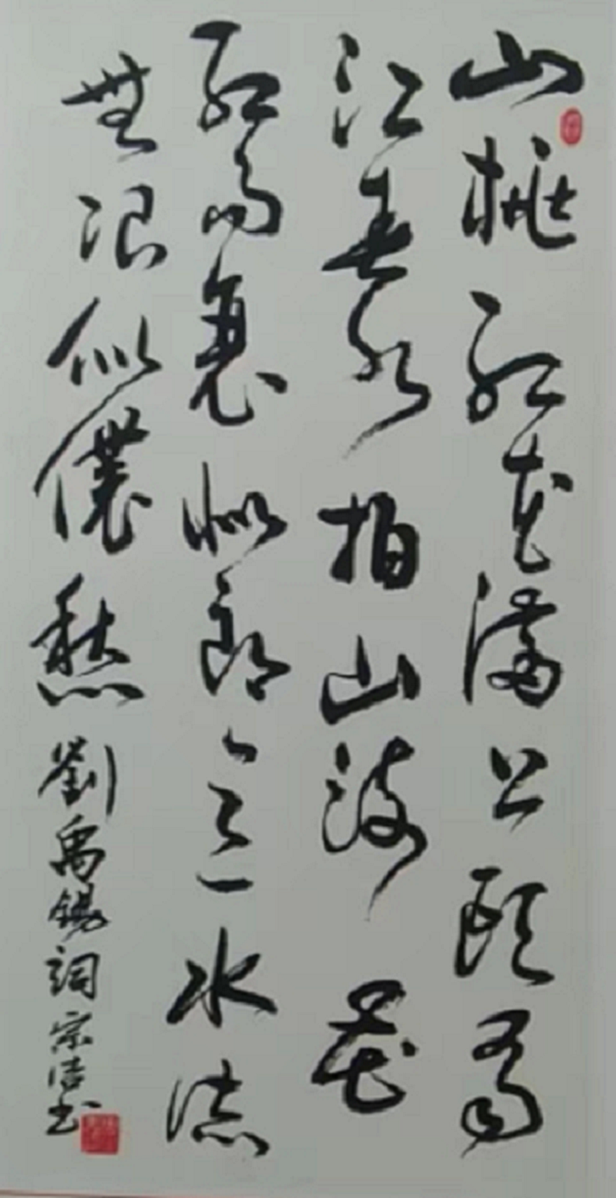 山桃紅花滿上頭蜀
江春水拍山流花
紅易衰似郎意水流
無限似儂愁劉禹錫詞宗书